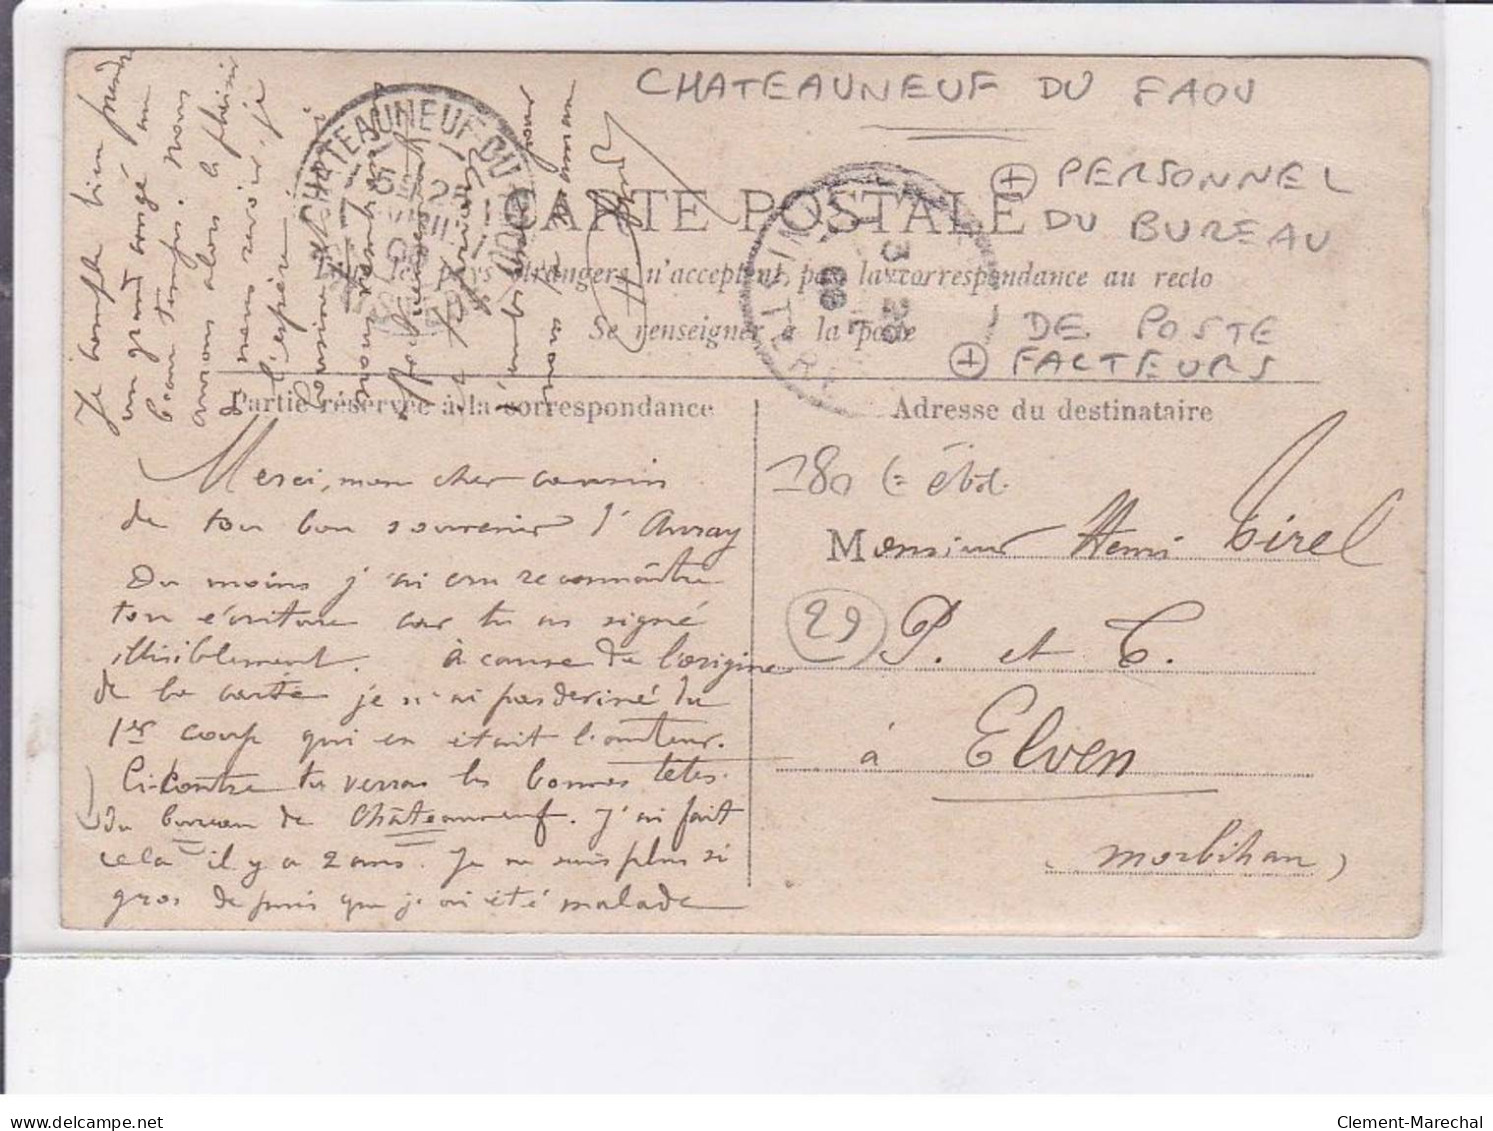 CHATEAUNEUF DU FAOU
+ PERSONNEL
DU BUREAU
DE POSTE
+ FACTEURS
CHATEAUNEUF-DU-FAOU
CARTE POSTALE
pays étrangers n'acceptent pas la correspondance au recto
Se renseigner à la poste
Partie réservée à la correspondance
Adresse du destinataire
Merci, mon cher cousin
de ton bon souvenir d'Auray
Du moins j'ai cru reconnaître
ton écriture car tu as signé
illisiblement. à cause de l'origine
de la carte je n'ai pas deviné du
1er coup qui en était l'auteur.
Ci-contre tu verras les bonnes têtes
du bureau de Châteauneuf. J'ai fait
cela il y a 2 ans. Je ne suis plus si
gros depuis que j'ai été malade
Je compte bien prendre
un grand congé au
beau temps. Nous
aurons alors le plaisir
de nous revoir, je
l'espère.
180 € ébd.
Monsieur Henri Tirel
29
P. et T.
à Elven
(Morbihan)
delcampe.net
Clement-Marechal